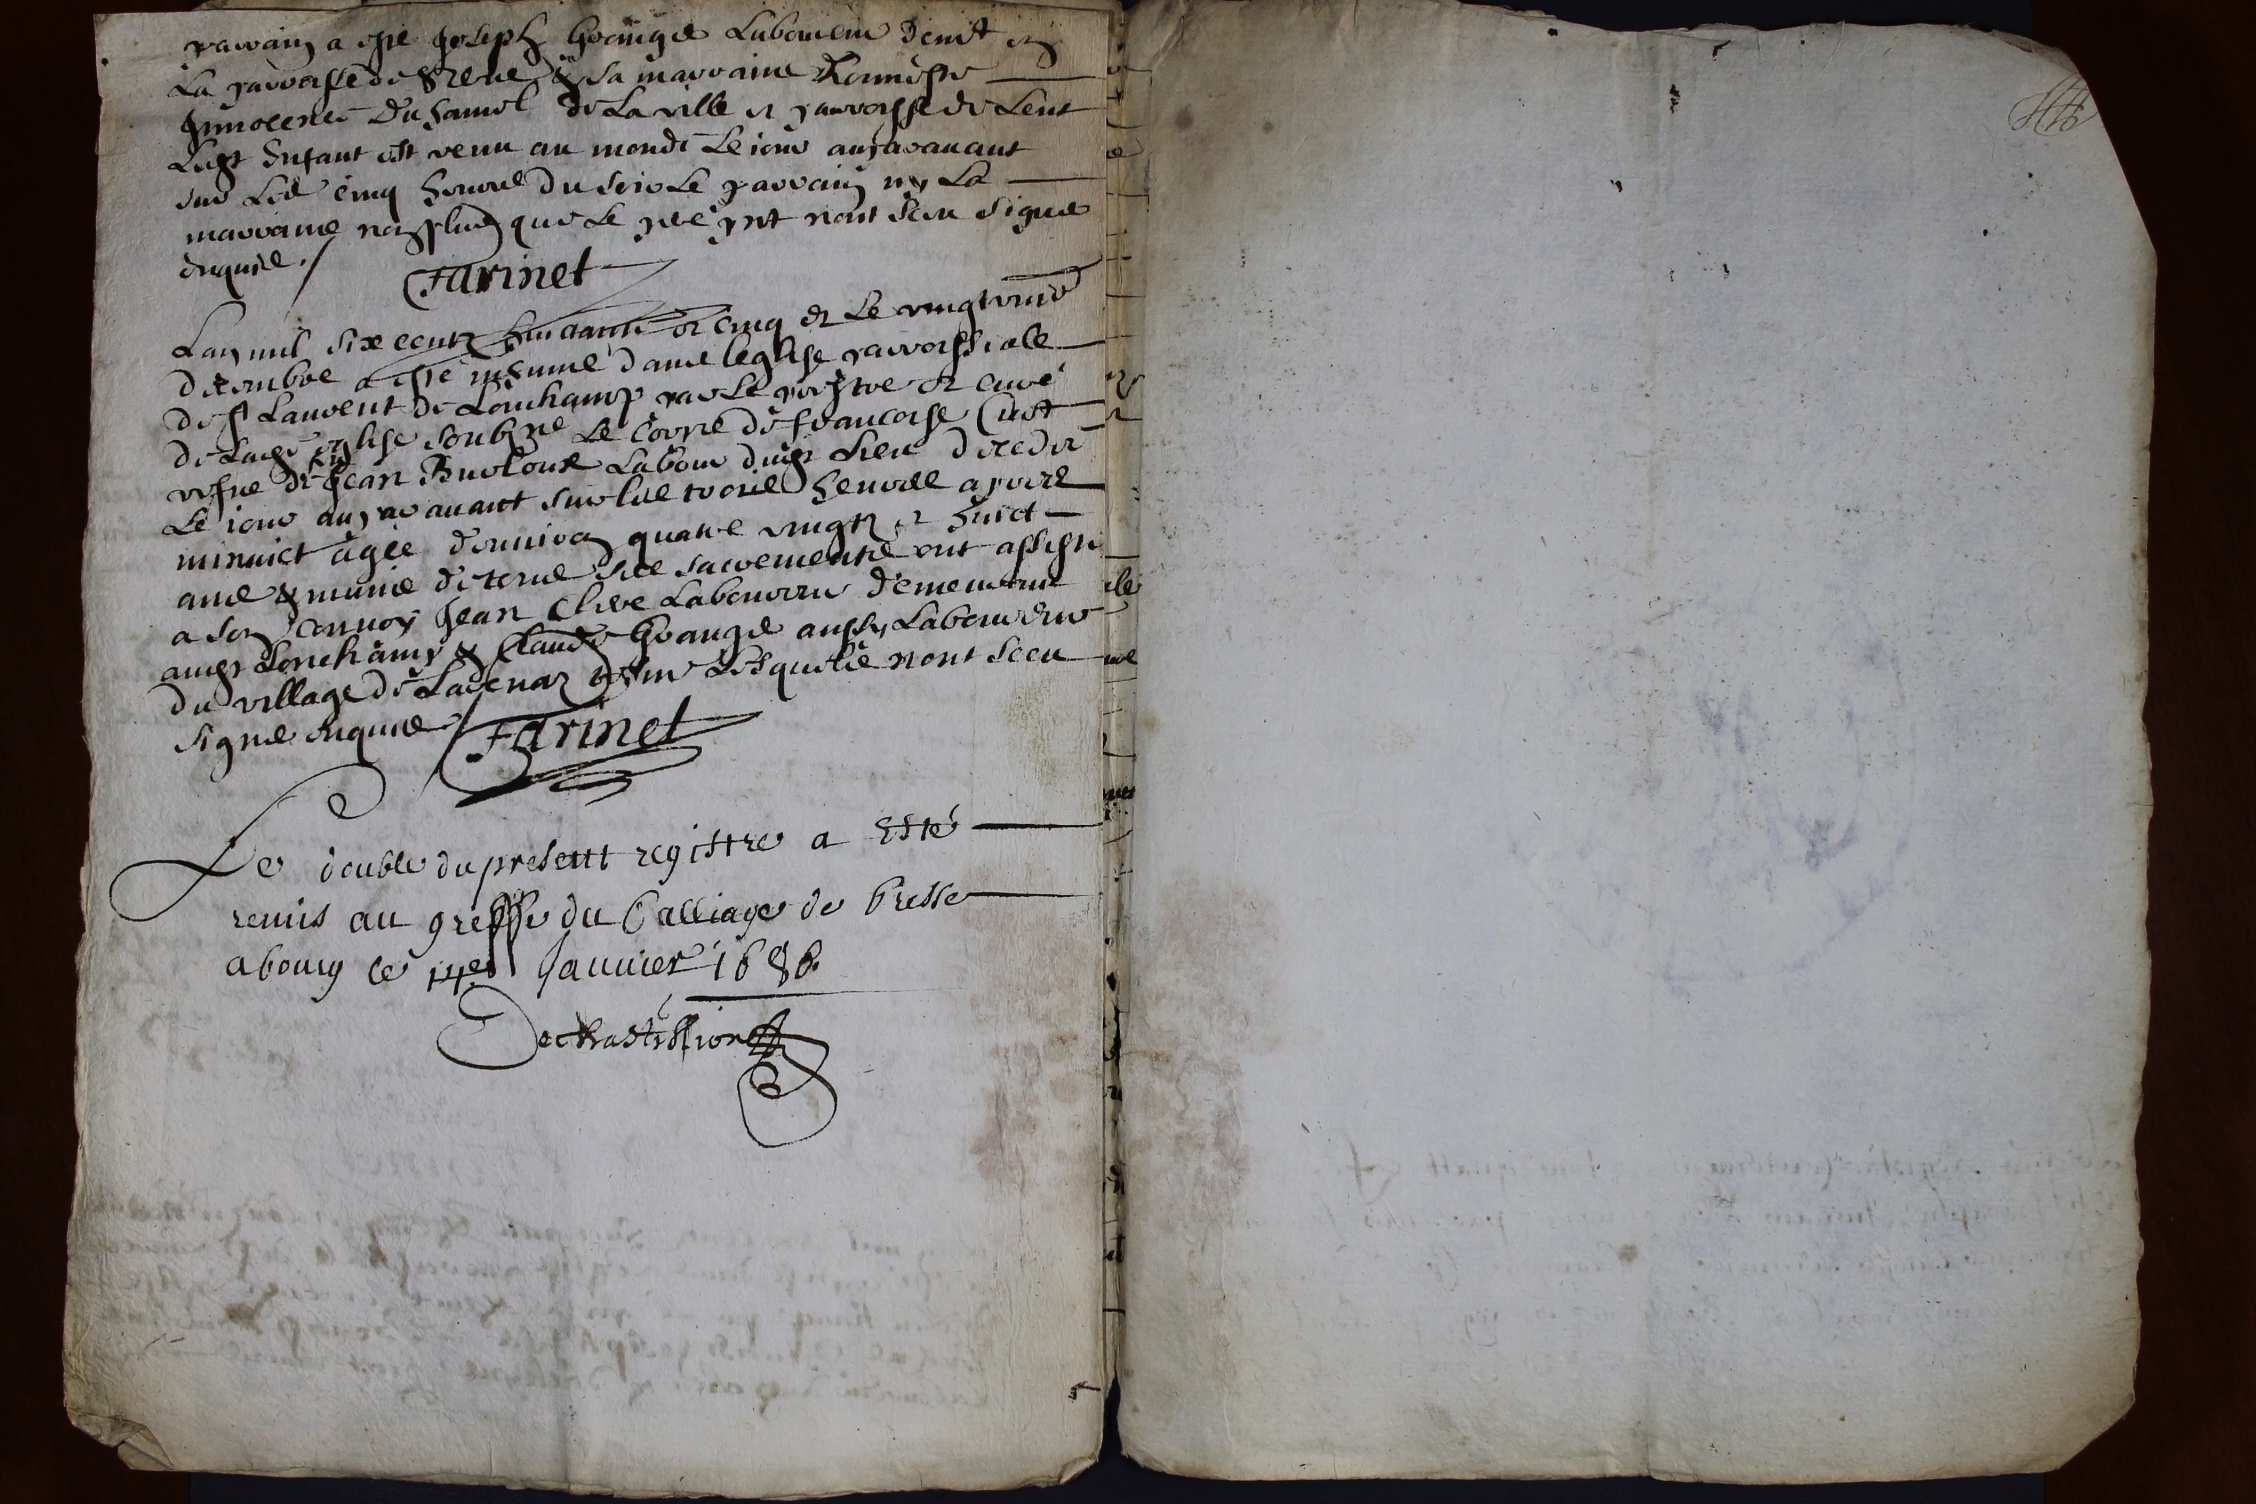 parrain a esté Joseph Grange Laboureur
La parroisse de & sa marraine honneste
Innocente Duhamel de La ville et parroisse de Lent
Ledt Enfant est venu au monde Le iour auparauant
sur Les cinq heures du soir Le parrain ny La
marraine non plus que Le pere pnt nont sceu signer
enquis./
Farinet
L'an mil six cents huictante et cinq et Le vingt
decembre a esté inhumé dans leglise parroissiale
de st Laurent de Lonchamp par Le prestre et curé
de Ladte eglise soubzné Le corps de francoise Cust
vefue de Jean Labour dudt Lieu decedée
Le iour auparauant sur les trois heures apres
minuict agée denuiron quatre vingts et huict
ans & munie de tous ses sacrements ont assisté
a son conuoy Jean Clere Laboureur demeurant
audt Lonchamp & Claude Grange aussy Laboureur
du village de Lesquels nont sceu
signer enquis /
Farinet
Le double du present registre a esté
remis au greffe du balliage de bresse
a bourg ce 14e Januier 1686.
Dechastillion